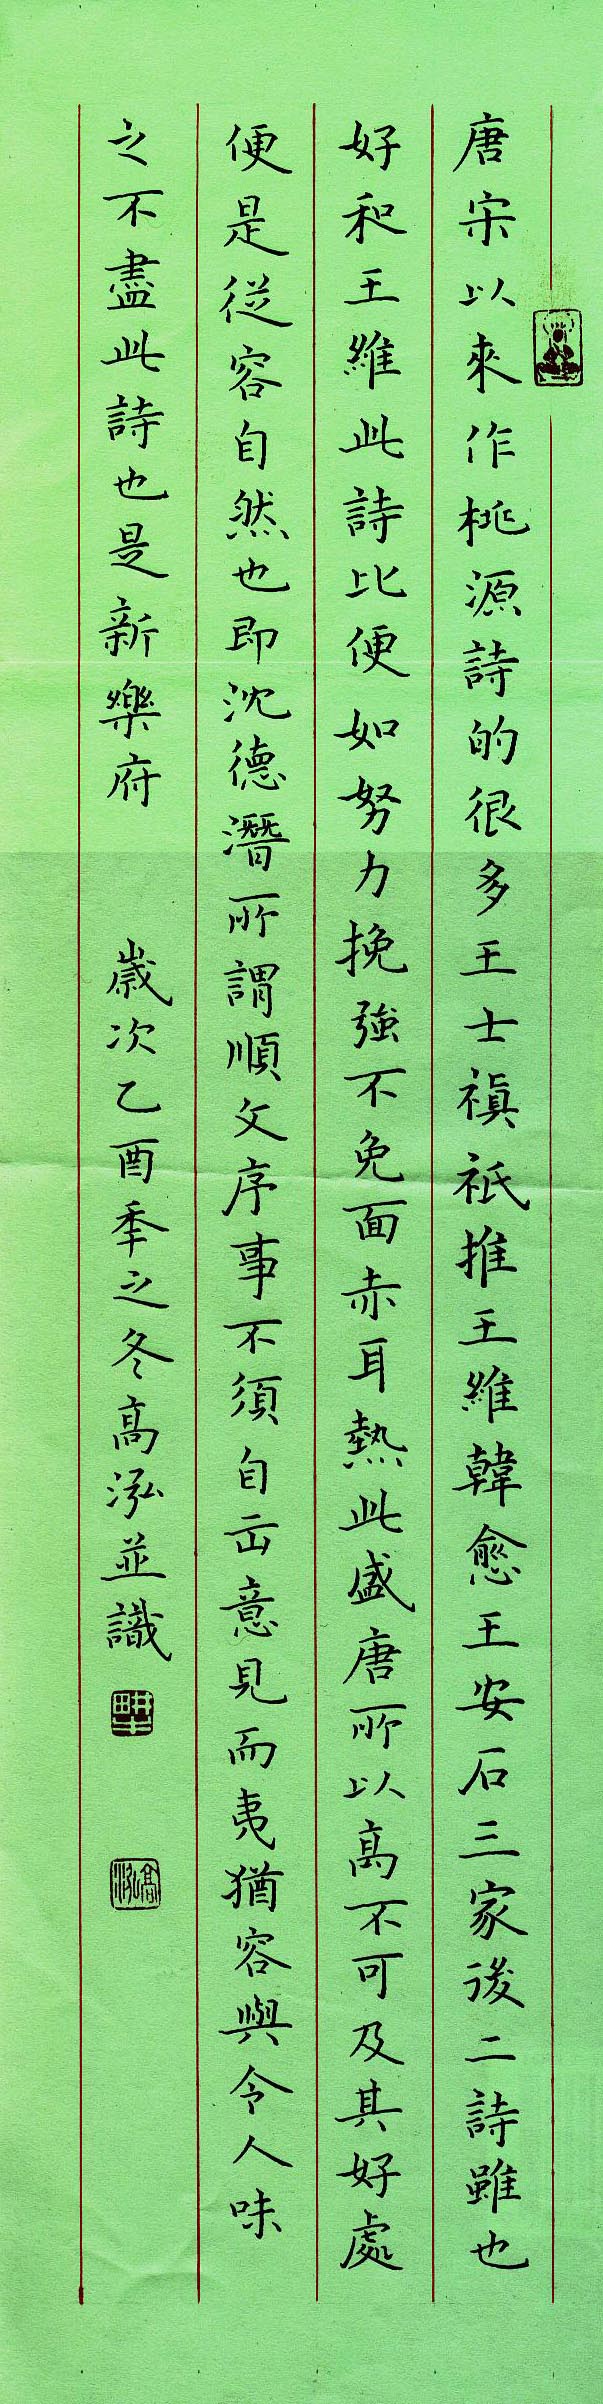 唐宋以來作桃源詩的很多王士禛祇推王維韓愈王安石三家後二詩雖也
好和王維此詩比便如努力挽強不免面赤耳熱此盛唐所以高不可及其好處
便是從容自然也即沈德潛所謂順文序事不須自出意見而夷猶容與令人味
之不盡此詩也是新樂府 歲次乙酉季之冬高泓並識
高泓